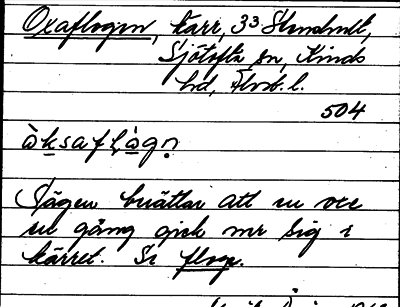 Oxaflogen, kärr, 33 Slumhult,
Sjötofta sn, Kinds
hd, Älvsb. l.
504
àksaflàgn
Sägen berättar att en oxe
en gång gick ner sig i
kärret. Se floge.